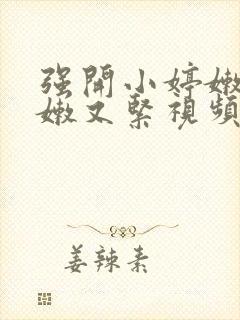 强開小婷嫩
嫩又緊視頻
姜辣素